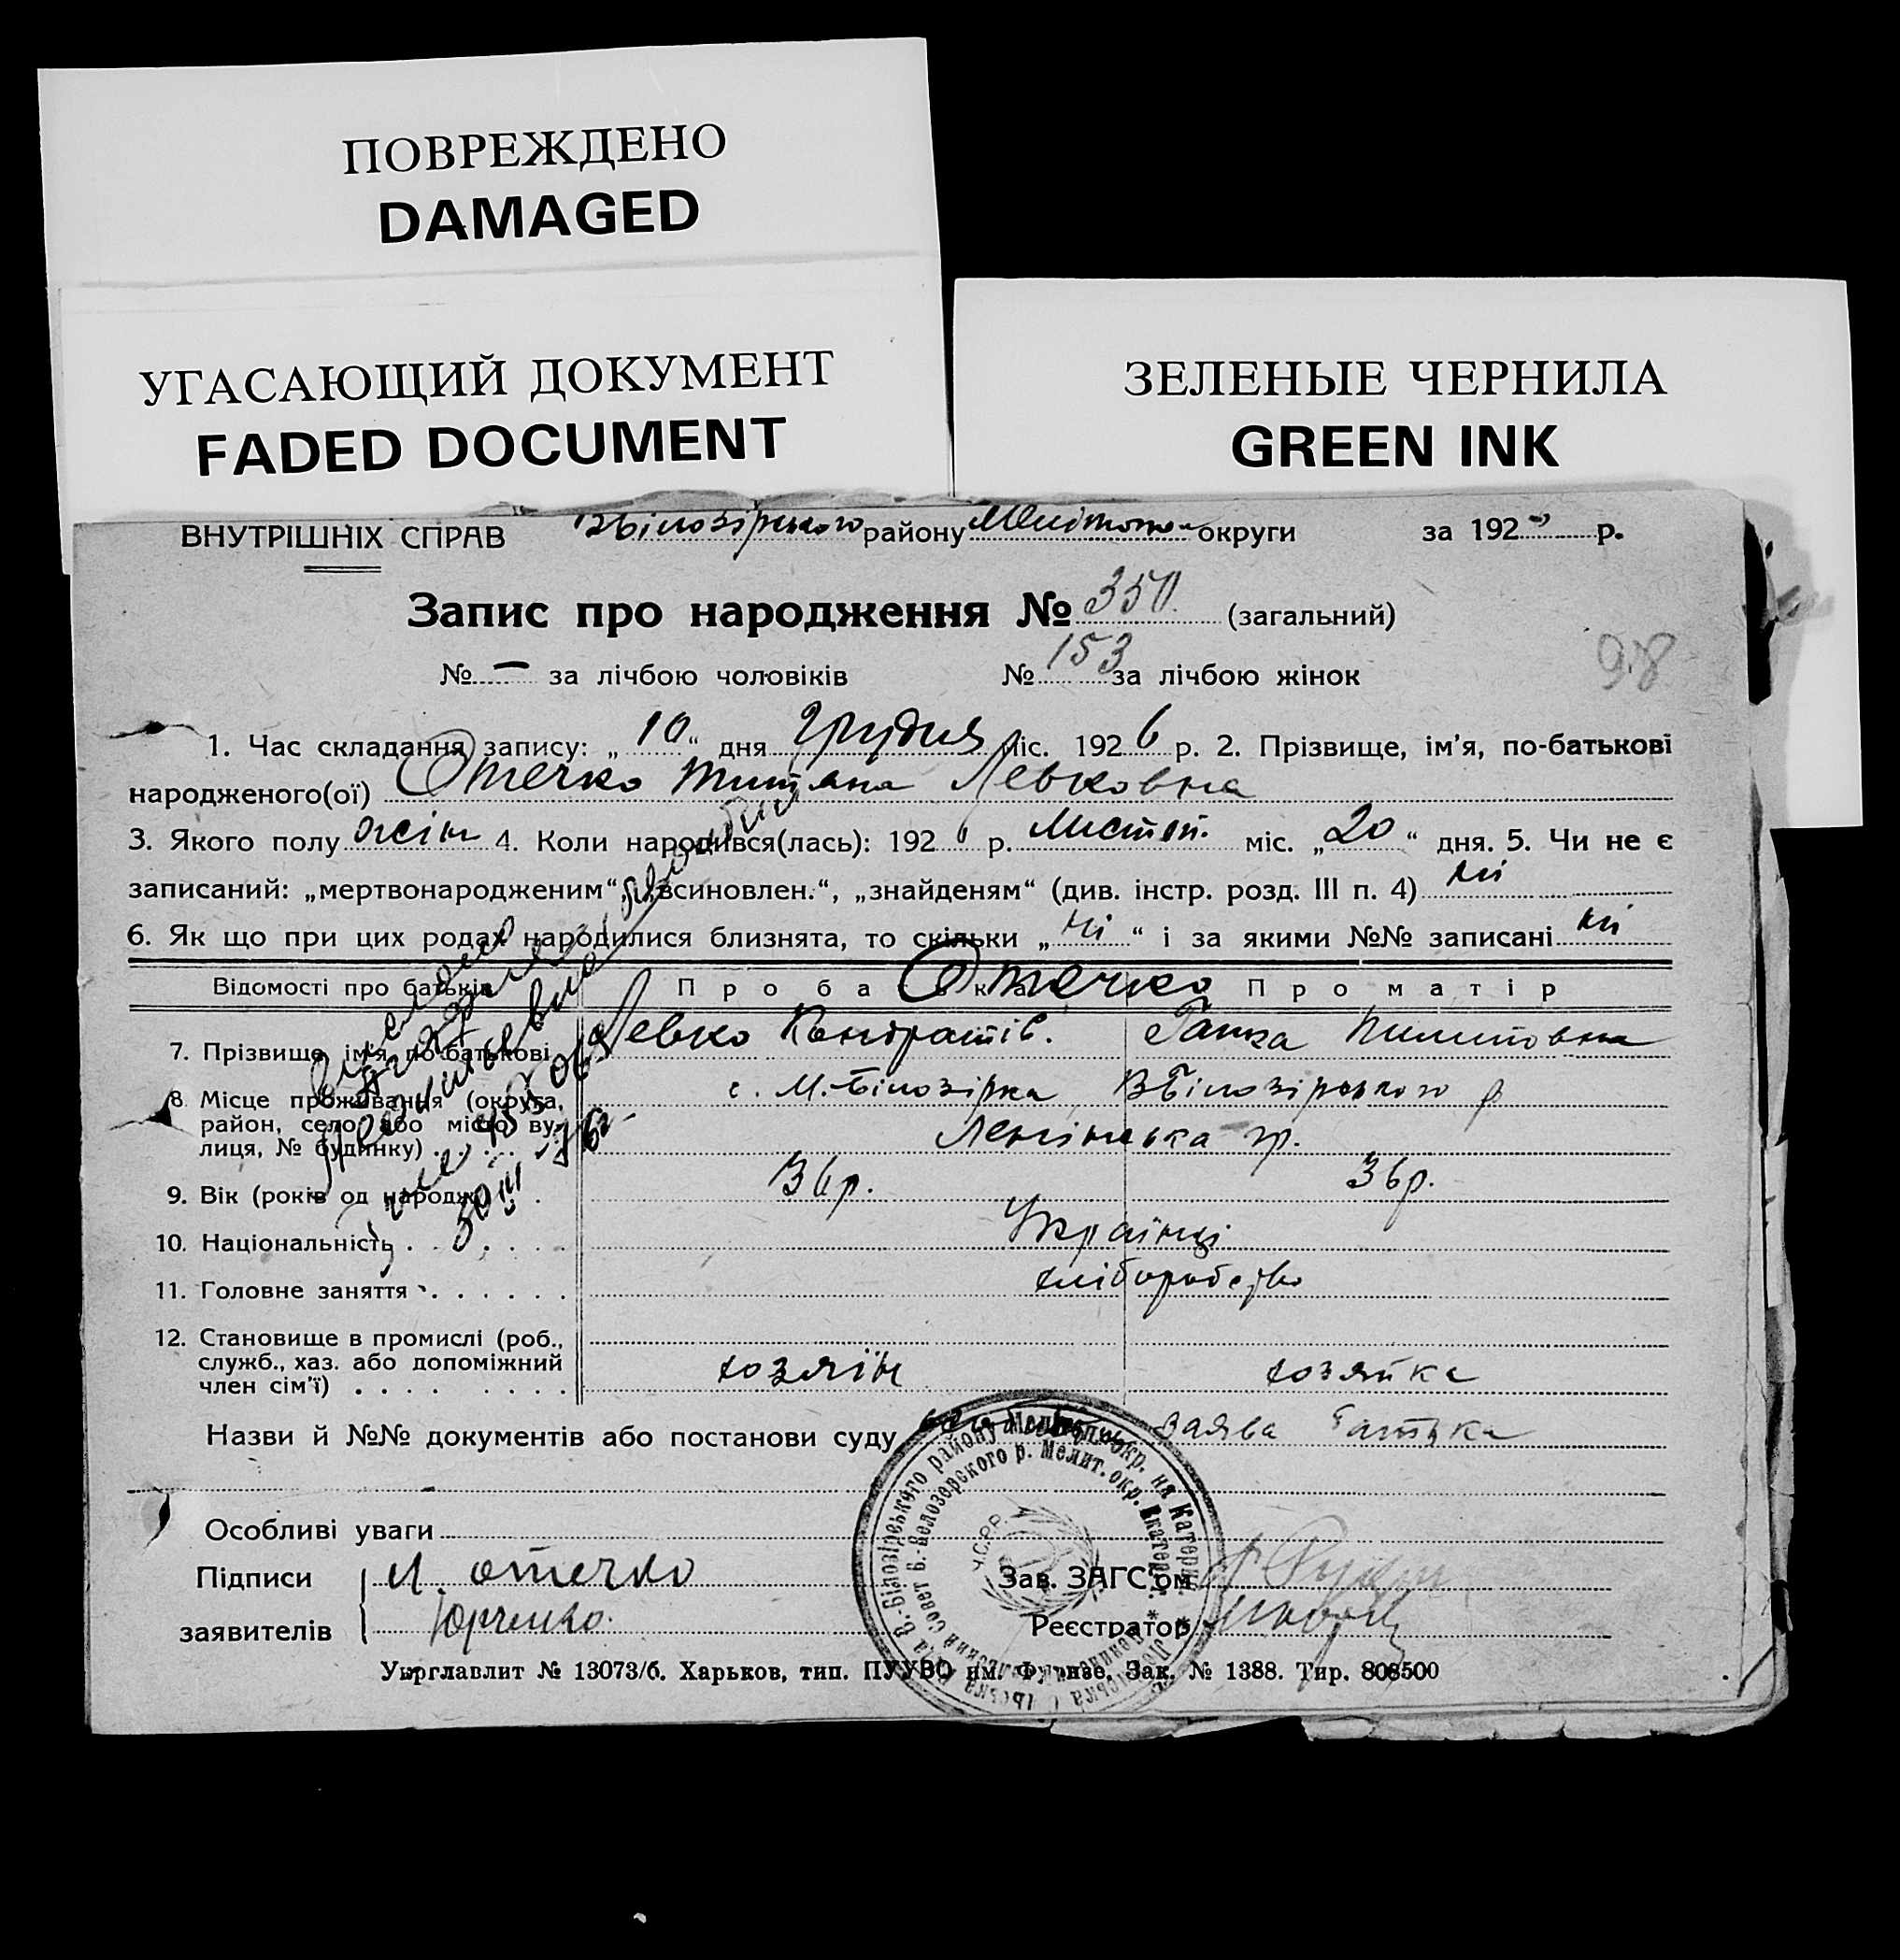 ПОВРЕЖДЕНО
DAMAGED
УГАСАЮЩИЙ ДОКУМЕНТ
FADED DOCUMENT
ЗЕЛЕНЫЕ ЧЕРНИЛА
GREEN INK
ВНУТРІШНІХ СПРАВ ВБілозірського району Меліто округи за 192 р.
Запис про народження № 350 (загальний)
№ — за лічбою чоловіків № 153 за лічбою жінок
98
1. Час складання запису: „10“ дня Грудня міс. 1926 р. 2. Прізвище, ім’я, по-батькові
народженого(ої) Отечко Титяна Левковна
3. Якого полу жін 4. Коли народився(лась): 1926 р. Листоп. міс. „20“ дня. 5. Чи не є
записаний: „мертвонародженим“, „всиновлен.“, „знайденям“ (див. інстр. розд. III п. 4) ні
6. Як що при цих родах народилися близнята, то скільки „ні“ і за якими №№ записані ні
Відомості про батьків Про батька Отечко Про матір
7. Прізвище, ім’я, по-батькові Левко Кондратів. Ганка Пилиповна
8. Місце проживання (округа, с. М.-Білозірка ВБілозірського р
район, село або місто, ву-
лиця, № будинку) Ленінська гр.
9. Вік (років од народж.) 36р. 36р.
10. Національність Українці
11. Головне заняття хліборобство
12. Становище в промислі (роб.,
служб., хаз. або допоміжний
член сім’ї) хозяїн хозяйка
Назви й №№ документів або постанови суду заява батька
Особливі уваги
Підписи Л. Отечко Зав. ЗАГС’ом
заявителів Юрченко. Реєстратор
Укрглавлит № 13073/б. Харьков, тип. ПУУВО им. Фрунзе. Зак. № 1388. Тир. 808500
В.-Білозірського району Мелітоп. окр. на Катерин.
Совет В.-Белозерского р. Мелит. окр. Екатер.
У.С.Р.Р.